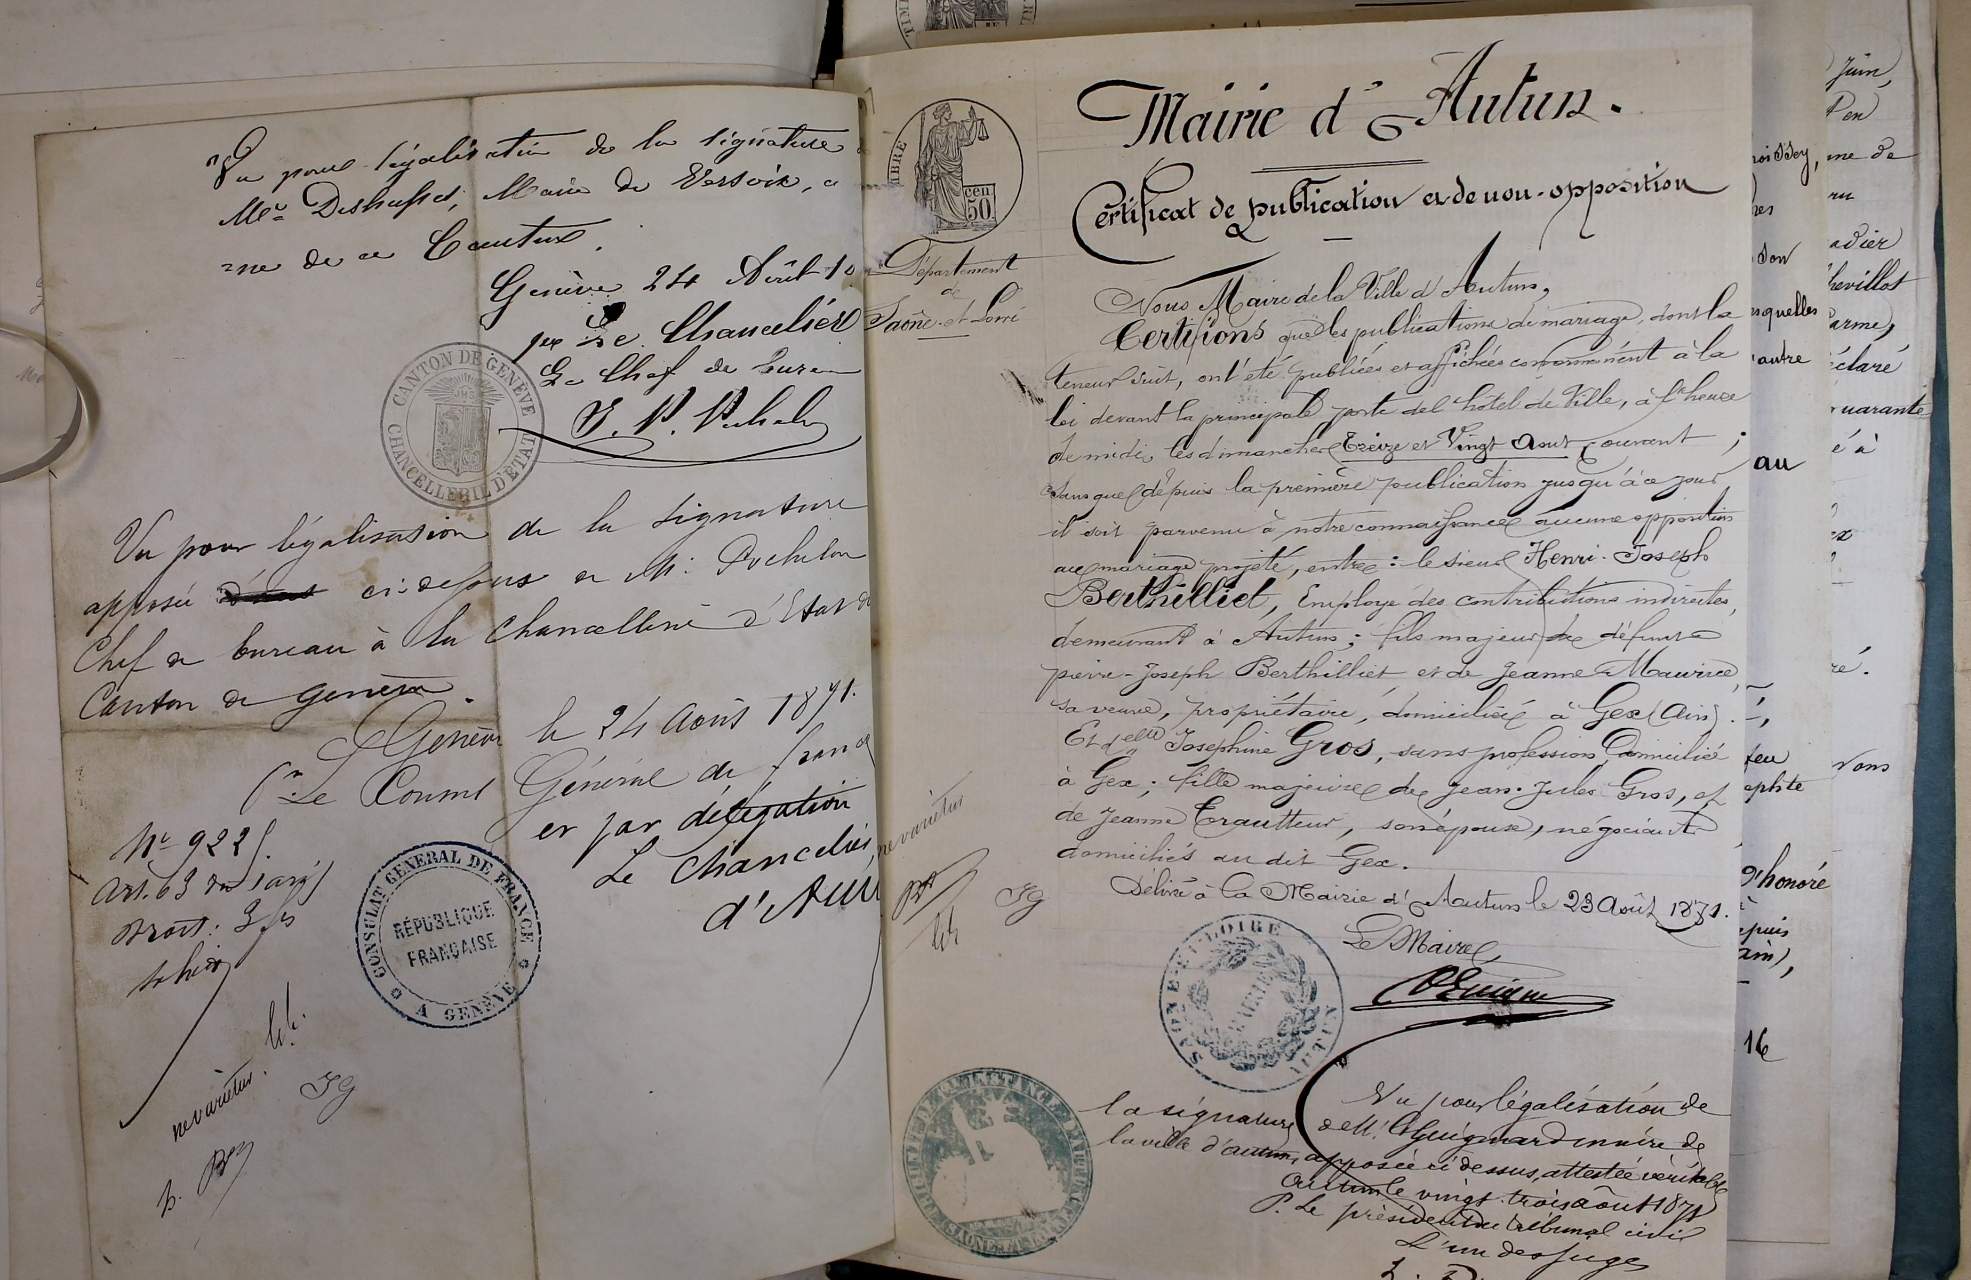 Vu pour légalisation de la signature de
Mr Deshusses, Maire de Versoix, com
=ne de ce Canton.
Genève 24 Août 18
per Le Chancelier
Le Chef de bureau
CANTON DE GENÈVE
CHANCELLERIE D'ÉTAT
Vu pour légalisation de la signature
apposée ci-dessus de Mr
Chef de bureau à la Chancellerie d'Etat du
Canton de Genève.
Genève le 24 Août 1871.
Pr. Le Consul Général de france
et par délégation
Le Chancelier,
No 922
Art. 63 du tarif
Droit:
CONSULAT GÉNÉRAL DE FRANCE
RÉPUBLIQUE
FRANÇAISE
A GENÈVE
ne varietur.
JG
Mairie d'Autun.
Certificat de publication et de non-opposition
MBRE
50 cen
Département
de
Saône-et-Loire
Nous Maire de la Ville d'Autun,
Certifions que les publications de mariage, dont la
teneur suit, ont été publiées et affichées conformément à la
loi devant la principale porte de l'hôtel de Ville, à l'heure
de midi, les dimanches Treize et Vingt Aout courant;
Sans que depuis la première publication jusqu'à ce jour
il soit parvenu à notre connaissance aucune opposition
au mariage projeté, entre: le sieur Henri-Joseph
Berthilliet, Employé des contributions indirectes,
demeurant à Autun; fils majeur de défunt
pierre-Joseph Berthilliet et de Jeanne Maurice
sa veuve, propriétaire, domiciliée à Gex (Ain).
Et delle Josephine Gros, sans profession, Domiciliée
à Gex; fille majeure de Jean-Jules Gros, et
de Jeanne Trautteur, son épouse, négociants
domiciliés au dit Gex.
Délivré à la Mairie d'Autun le 23 Août 1871.
Le Maire,
ne varietur
JG
SAÔNE-ET-LOIRE
MAIRIE
AUTUN
Vu pour légalisation de
la signature de Mr Guignard maire de
la ville d'autun, apposée ci dessus, attestée véritable
Autun le vingt-trois août 1871
P. Le président du tribunal civil
L'un des juges
Juin,
me de
avier
hevillot
arme,
éclaré
quarante
é à
vous
roissey,
son
squelles
autre
au
feu
ephte
d'honoré
epuis
ain),